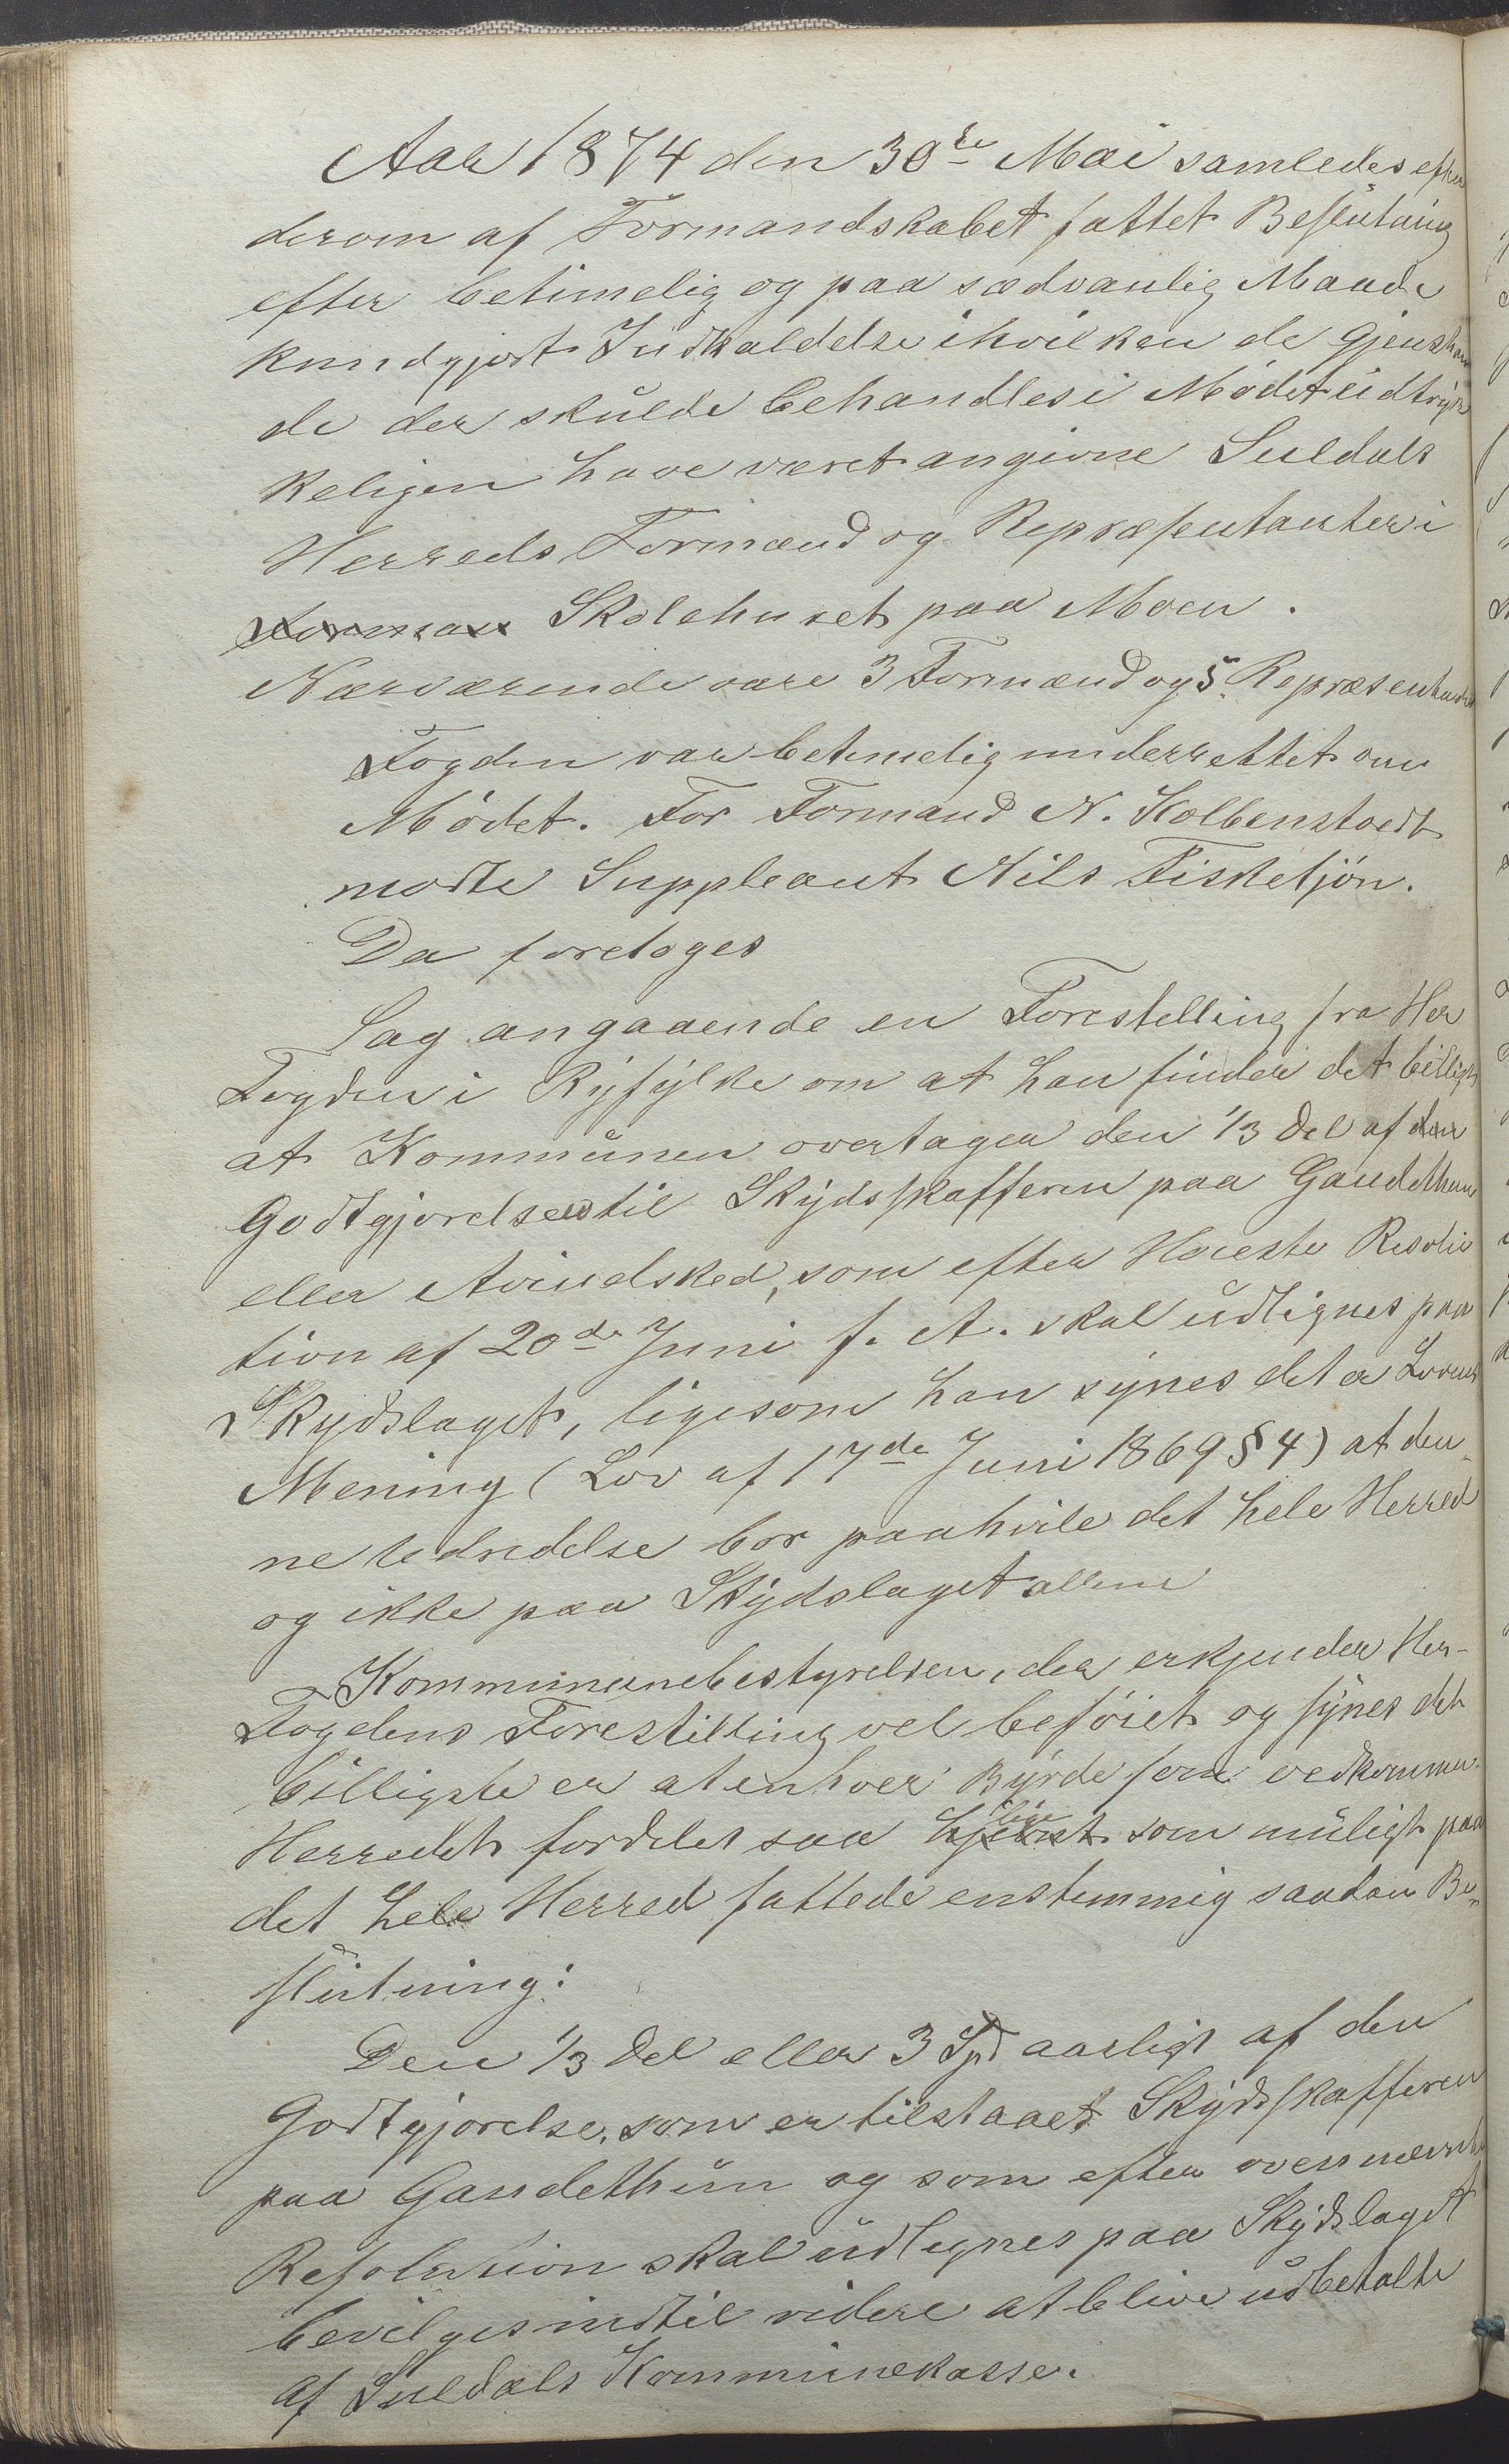 Aar 1874 den 30te Mai samledes efter
derom af Formandskabet fattet Beslutning
efter betimelig og paa sædvanlig Maade
kundgjort Indkaldelse ihvilken de Gjenstan
de der skulde behandles i Mødet udtryk
keligen have været angivne Suldals
Herreds Formænd og Repræsentanter i
Skolehuset paa Moen.
Nærværende vare 3 Formænd og 5 Repræsentanter
Fogden var betimelig underrettet om
Mødet. For Formand N. Kolbenstvedt
mødte Suppleant Nils Fisketjön.
Da foretoges
Sag angaaende en Forestelling fra Her
Fogden i Ryfylke om at han finder det billigt
at Kommunen overtager den 1/3 Del af den
Godtgjørelse til Skydsskafferen paa Gaudethun
eller Avindsked, som efter Høieste Resolu
tion af 20de Juni f. A. skal udlignes paa
Skydslaget, ligesom han synes det er Lovens
Mening (Lov af 17de Juni 1869 § 4) at den
ne Udredelse bør paahvile det hele Herred
og ikke paa Skydslaget allene
Kommunebestyrelsen, der erkjender Her-
Fogdens Forestilling vel beføiet og synes det
billigste er at enhver Byrde som vedkommer
Herredet fordeles saa lige som muligt paa
det hele Herred fattede enstemmig saadan Be-
slutning:
Den 1/3 Del eller 3 Spd aarligt af den
Godtgjørelse, som er tilstaaet Skydsskafferen
paa Gaudethun og som efter ovennævnte
Resolution skal udlignes paa Skydslaget
bevilges indtil videre at blive udbetalte
af Suldals Kommunekasse.